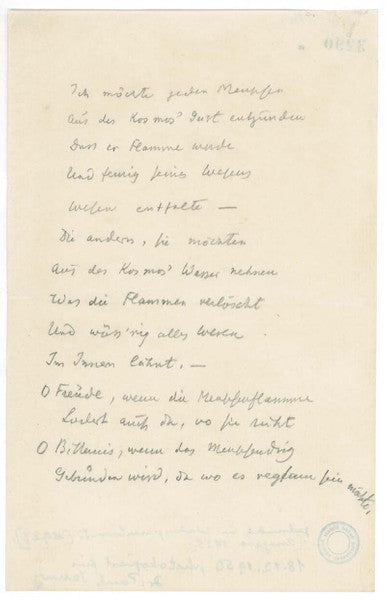 3290
Ich möchte jeden Menschen
Aus des Kosmos' Geist entzünden
Dass er Flamme werde
Und feurig seines Wesens
Wesen entfalte —
Die andern, sie möchten
Aus des Kosmos' Wasser nehmen
Was die Flammen verlöscht
Und wäss'rig alles Wesen
Im Innern lähmt. —
O Freude, wenn die Menschenflamme
Lodert auch da, wo sie ruht
O Bitternis, wenn das Menschending
Gebunden wird, da wo es regsam sein möchte.